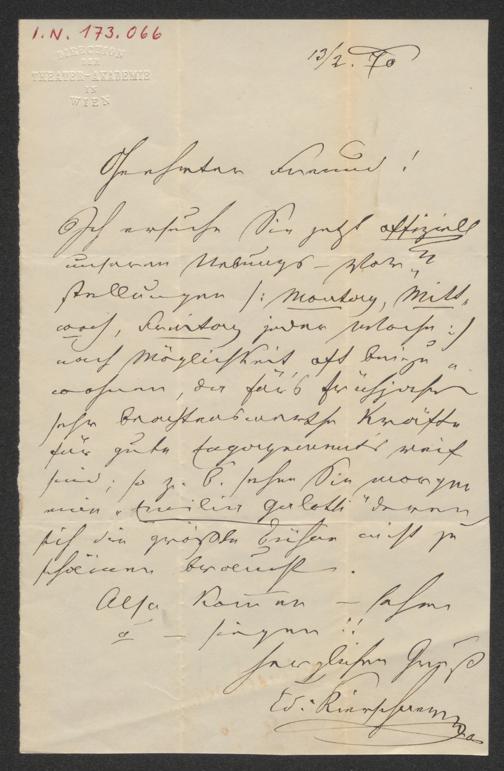 I. N. 173.066
DIRECTION
DER
THEATER-AKADEMIE
IN
WIEN
13/2. 70
Geehrter Freund!
Ich ersuche Sie jetzt offiziell
unseren Uebungs-Vor-
stellungen /: Montag, Mitt-
woch, Freitag jeder Woche :/
nach Möglichkeit oft beizu-
wohnen, da für's Frühjahr
sehr beachtenswerthe Kräfte
für gute Engagements reif
sind; so z. B. sehen Sie morgen
eine "Emilia Galotti" deren
sich die größte Bühne nicht zu
schämen braucht.
Also kommen – sehen
u – siegen!!
Herzlichen Gruß
Ed. Kierschner